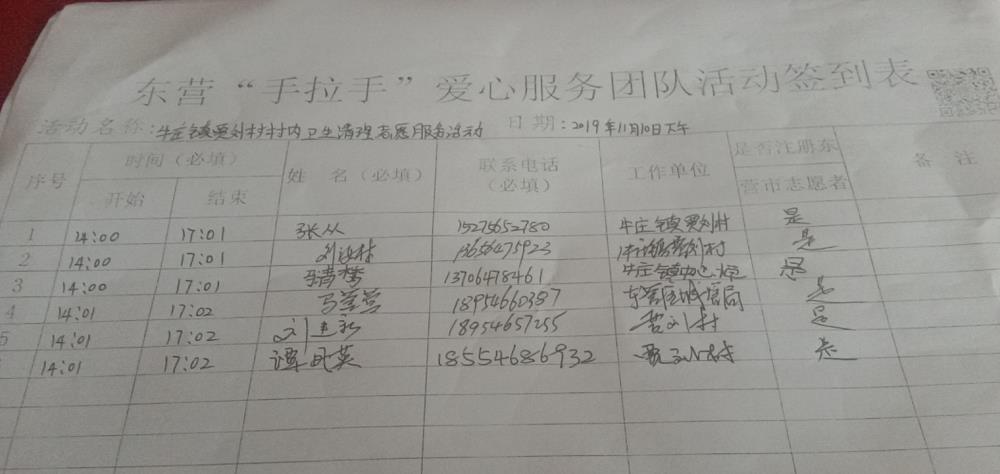 东营“手拉手”爱心服务团队活动签到表
活动名称：牛庄镇贾刘村村内卫生清理志愿服务活动 日期：2019年11月10日下午
序号 时间（必填） 姓 名（必填） 联系电话（必填） 工作单位 是否注册东营市志愿者 备 注
开始 结束
1 14:00 17:01 张从 15275652780 牛庄镇贾刘村 是
2 14:00 17:01 13656475923 刘村 是
3 14:00 17:01 13706478461 牛庄镇 是
4 14:01 17:02 马莹莹 18954660387 东营区城管局 是
5 14:01 17:02 刘 18954657255 刘村 是
14:01 17:02 谭英 18554686932 村 是